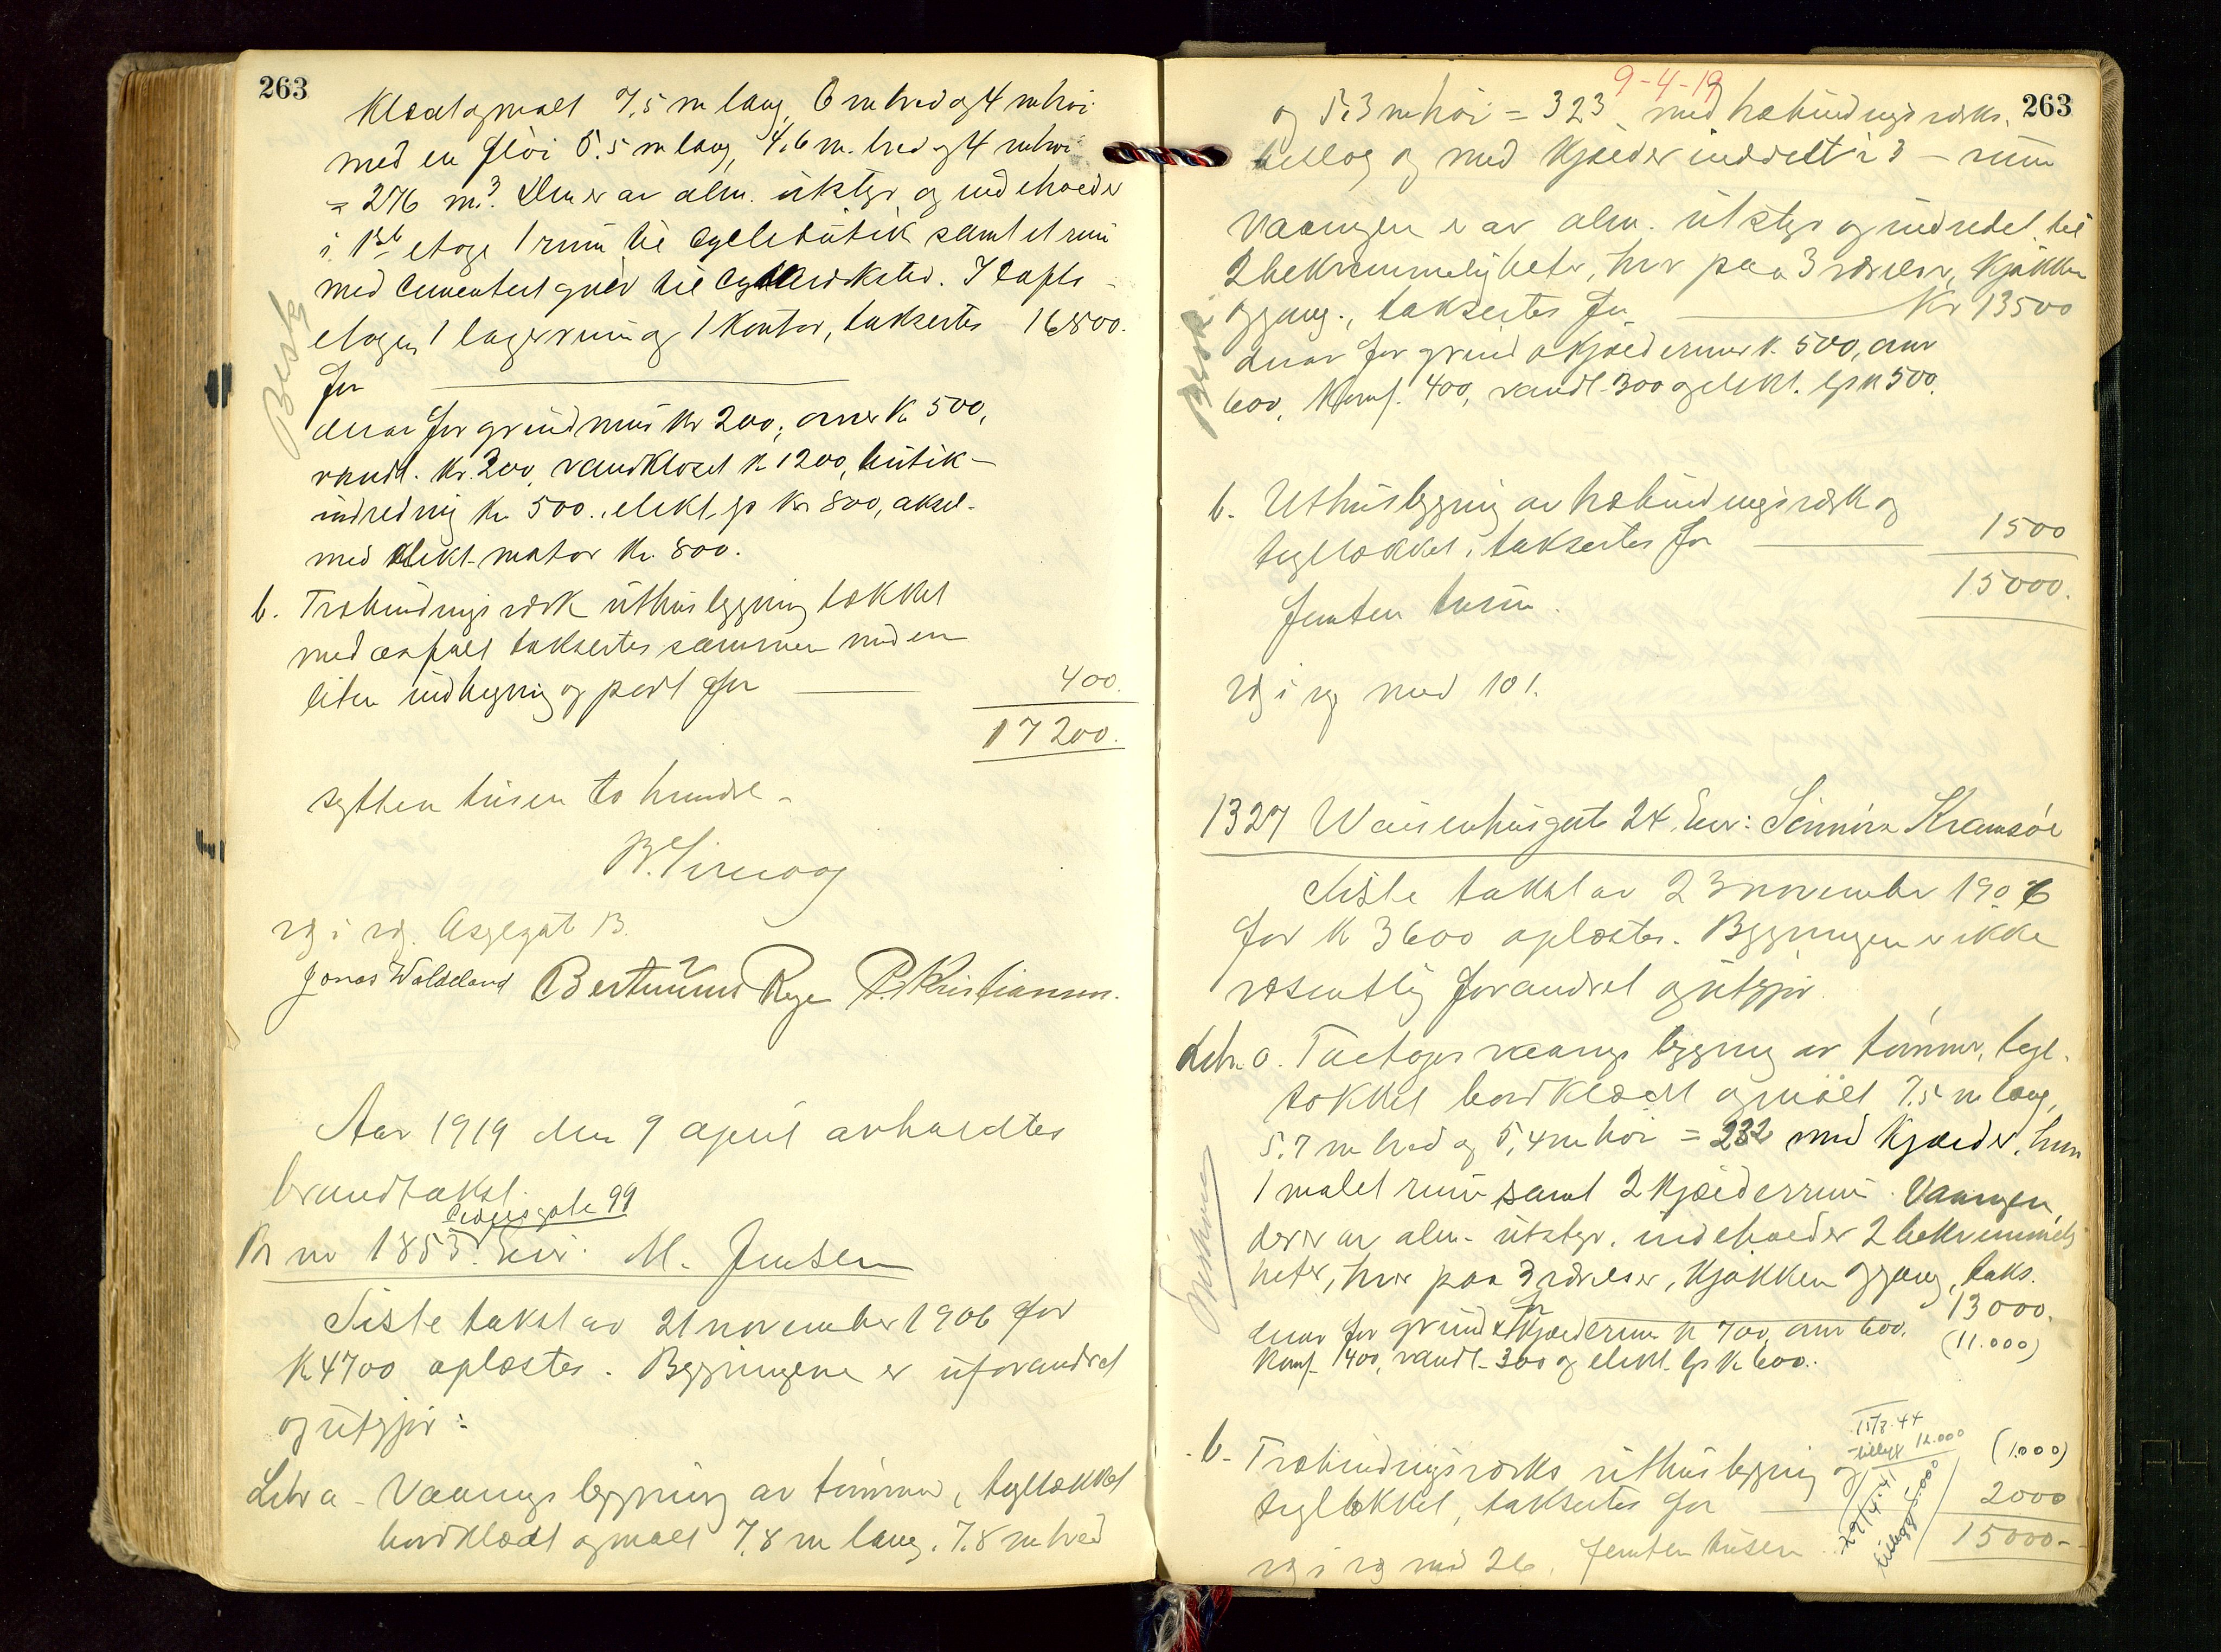 263
Klædt og malt 7,5 m lang, 6 m bred og 4 m høi
med en fløi 5.5 m lang, 4,6 m. bred og 4 m høi
= 276 m³. Den er av alm. utstyr og indeholder
i 1ste etage 1 rum til cyclebutik samt et rum
med cementert gulv til cykleverksted. I lofts-
etagen 1 lagerrum og 1 kontor, taksertes 16800.
for
derav for grundmur kr 200, ovner k 500,
vandl. kr. 200, vandkloset k 1200, butik-
indredning kr 500., elekt. lys kr 800, aksel-
med elekt. motor kr. 800.
b. Træbindingsverk uthusbygning tækket
med asfalt taksertes sammen med en
liten indhegning og port for 400.
17200.
sytten tusen to hundre -
vg i vg. Asylgat 13.
Jonas Waldeland Bertinius Rege P. Kristiansen.
Aar 1919 den 9 april avholdtes
brandtakst.
Pedersgate 99
Br no 1853. Eier: M. Jensen
Siste takst av 21 november 1906 for
K 4700 oplæstes. Bygningene er uforandret
og utgjør:
Litr a - Vaaningsbygning av tømmer, tegltækket
bordklædt og malt 7,8 m lang, 7.8 m bred
Besk
9-4-19
263
og 5.3 m høi = 323 med bebindingsverks
tillæg og med kjælder inddelt i 3 - rum
Vaaningen er av alm. utstyr og indredet til
2 bekvemmeligheter, hver paa 3 værelser, kjøkken
og gang, taksertes for Kr 13500
derav for grund & kjældermur k. 500, ovner
600, komf. 400, vandl. 300 og elekt. lys k 500.
b. Uthusbygning av bebindingsverk og
tegltækket, taksertes for 1500
15000.
femten tusen.
vg i vg med 101.
1327 Waisenhusgate 24. Eier: Sennira Kramsøe
Siste takst av 23 november 1906
for k 3600 oplæstes. Bygningen er ikke
væsentlig forandret og utgjør.
Litr. a. Toetages vaaningsbygning av tømmer, tegl-
tækket bordklædt og malt 7.5 m lang,
5.7 m bred og 5,4 m høi = 232 med kjælder, hvori
1 malet rum samt 2 kjælderrum. Vaaningen,
der er av alm. utstyr, indeholder 2 bekvemmelig
heter, hver paa 3 værelser, kjøkken og gang, taks.
for 13000.
derav for grund & kjælderrum k 700, ovner 600,
(11.000)
komf. 400, vandl. 300 og elekt. lys k 600.
15/3-44
tillegg 12.000
b. Træbindingsverks uthusbygning og (1.000)
tegltækket, taksertes for 2000
29/4-41
tillegg 5.000
15000-
vg i vg med 26. femten tusen